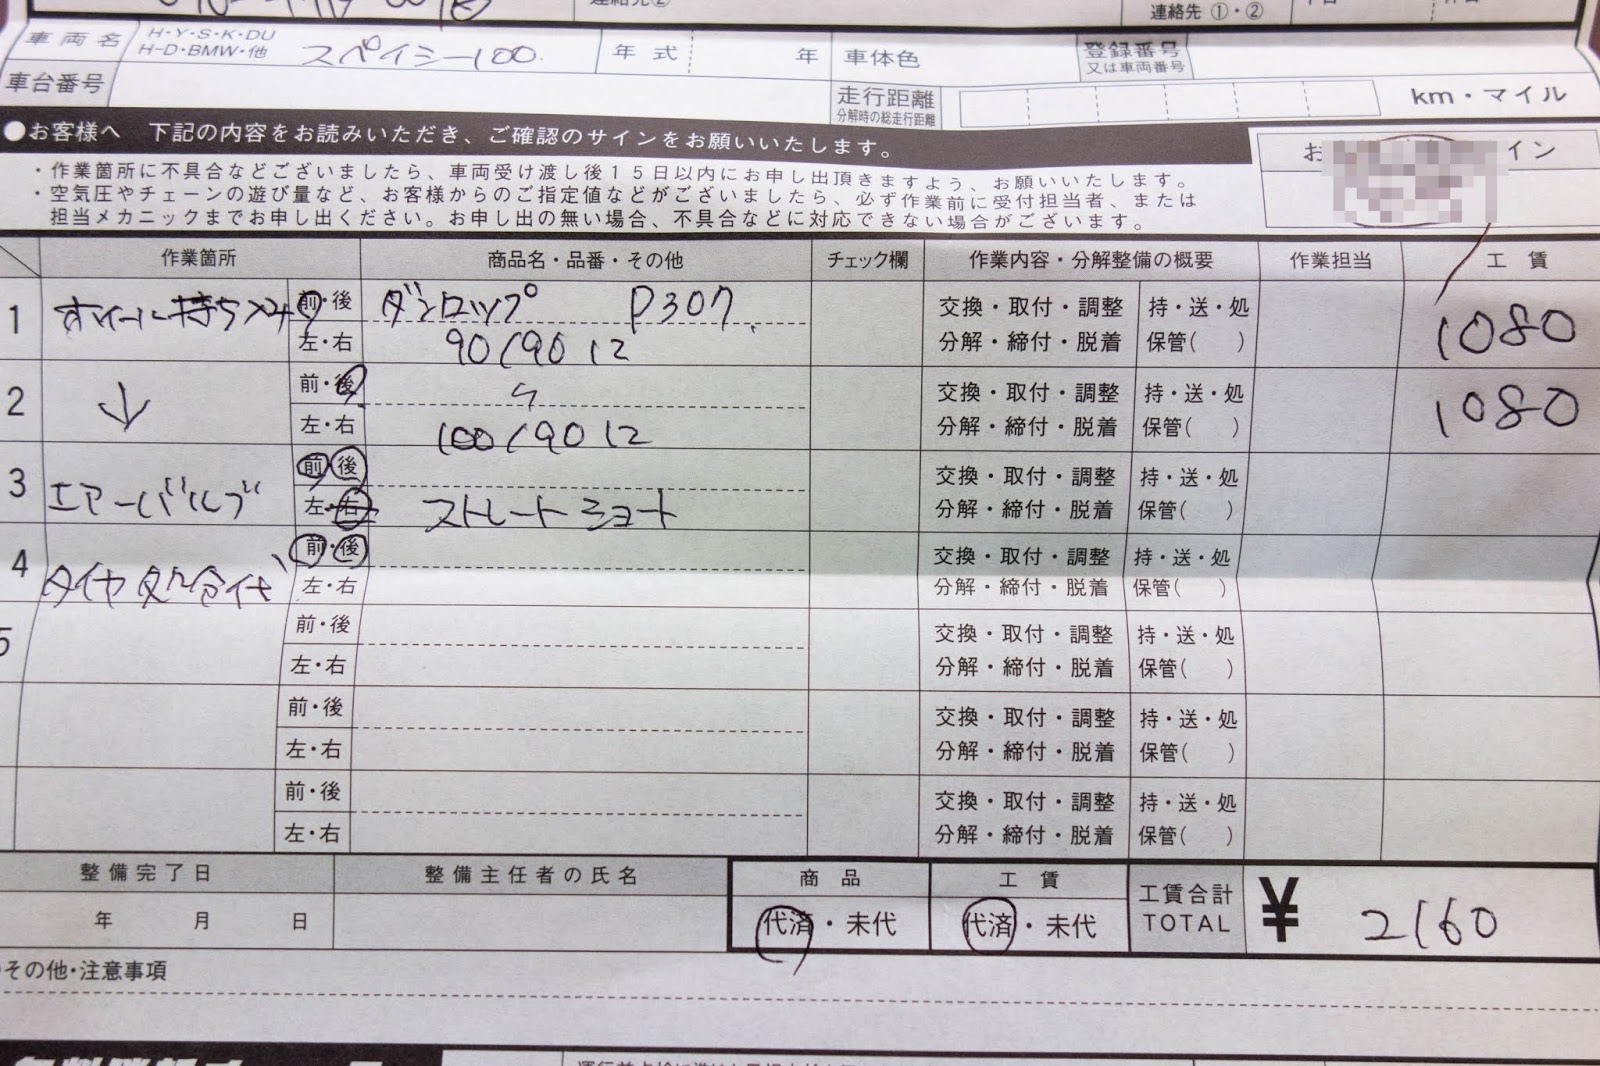 連絡先②
連絡先 ①・②
車両名 H・Y・S・K・DU
H-D・BMW・他 スペイシー100. 年式 年 車体色 登録番号
又は車両番号
車台番号 走行距離
分解時の総走行距離 km・マイル
●お客様へ 下記の内容をお読みいただき、ご確認のサインをお願いいたします。
・作業箇所に不具合などございましたら、車両受け渡し後15日以内にお申し出頂きますよう、お願いいたします。
・空気圧やチェーンの遊び量など、お客様からのご指定値などがございましたら、必ず作業前に受付担当者、または
担当メカニックまでお申し出ください。お申し出の無い場合、不具合などに対応できない場合がございます。
お イン
作業箇所 商品名・品番・その他 チェック欄 作業内容・分解整備の概要 作業担当 工賃
1 ホイール持ち込み 前・後 ダンロップ D307. 交換・取付・調整 持・送・処 1080
左・右 90/90 12 分解・締付・脱着 保管( )
2 ↓ 前・後 〃 交換・取付・調整 持・送・処 1080
左・右 100/90 12 分解・締付・脱着 保管( )
3 エアーバルブ 前・後 交換・取付・調整 持・送・処
左・右 ストレートショート 分解・締付・脱着 保管( )
4 タイヤ処分代 前・後 交換・取付・調整 持・送・処
左・右 分解・締付・脱着 保管( )
5 前・後 交換・取付・調整 持・送・処
左・右 分解・締付・脱着 保管( )
前・後 交換・取付・調整 持・送・処
左・右 分解・締付・脱着 保管( )
前・後 交換・取付・調整 持・送・処
左・右 分解・締付・脱着 保管( )
整備完了日 整備主任者の氏名 商品 工賃 工賃合計
TOTAL ¥ 2160
年 月 日 代済・未代 代済・未代
その他・注意事項